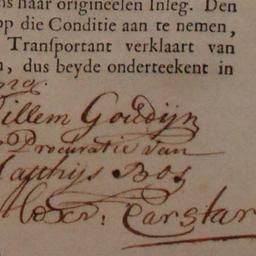 ns naar origineelen Inleg. Den
op die Conditie aan te nemen,
Transportant verklaart van
n, dus beyde onderteekent in
Willem Goudijn
Procuratie van
Matthijs Bos